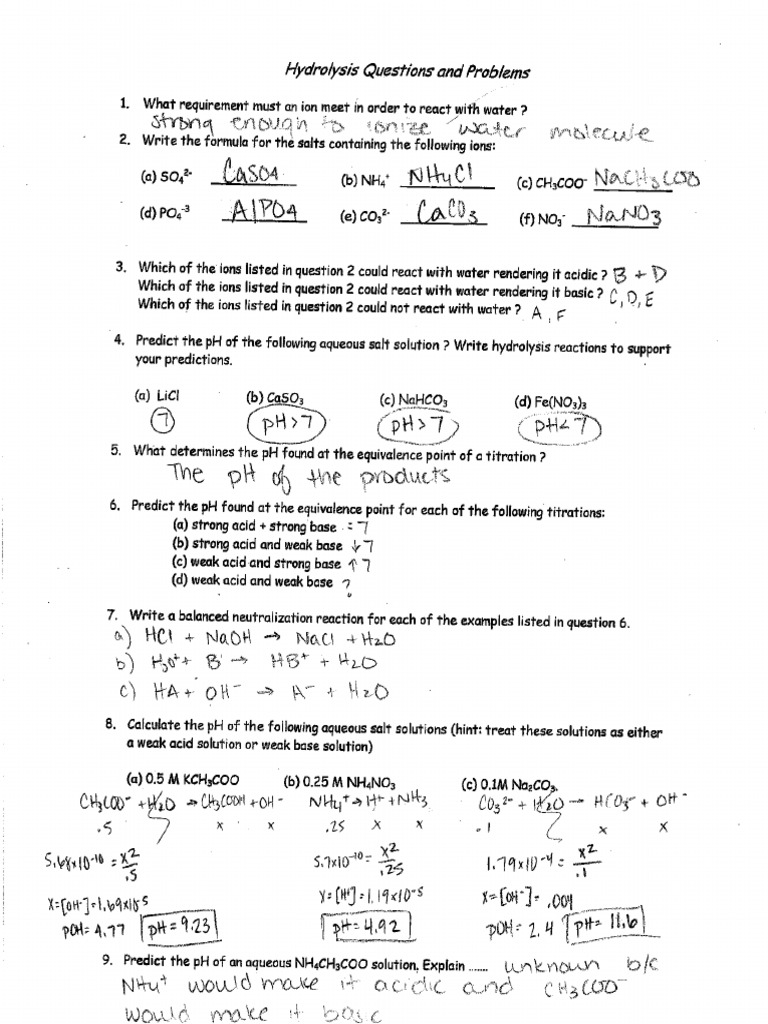 Hydrolysis Questions and Problems
1. What requirement must an ion meet in order to react with water ?
strong enough to ionize water molecule
2. Write the formula for the salts containing the following ions:
(a) SO₄²⁻ CaSO4 (b) NH₄⁺ NH4Cl (c) CH₃COO⁻ NaCH₃COO
(d) PO₄⁻³ AlPO4 (e) CO₃²⁻ CaCO₃ (f) NO₃⁻ NaNO₃
3. Which of the ions listed in question 2 could react with water rendering it acidic ? B + D
Which of the ions listed in question 2 could react with water rendering it basic ? C, D, E
Which of the ions listed in question 2 could not react with water ? A, F
4. Predict the pH of the following aqueous salt solution ? Write hydrolysis reactions to support
your predictions.
(a) LiCl (b) CaSO₃ (c) NaHCO₃ (d) Fe(NO₃)₃
7 pH>7 pH>7 pH<7
5. What determines the pH found at the equivalence point of a titration ?
The pH of the products
6. Predict the pH found at the equivalence point for each of the following titrations:
(a) strong acid + strong base = 7
(b) strong acid and weak base ↓7
(c) weak acid and strong base ↑7
(d) weak acid and weak base ?
7. Write a balanced neutralization reaction for each of the examples listed in question 6.
a) HCl + NaOH → NaCl + H2O
b) H₃O⁺ + B → HB⁺ + H2O
c) HA + OH⁻ → A⁻ + H2O
8. Calculate the pH of the following aqueous salt solutions (hint: treat these solutions as either
a weak acid solution or weak base solution)
(a) 0.5 M KCH₃COO (b) 0.25 M NH₄NO₃ (c) 0.1M Na₂CO₃
CH₃COO⁻ + H2O → CH₃COOH + OH⁻ NH4⁺ → H⁺ + NH3 CO3²⁻ + H2O → HCO3⁻ + OH⁻
.5 x x .25 x x .1 x x
5.68x10⁻¹⁰ = x2/.5 5.7x10⁻¹⁰ = x2/.25 1.79x10⁻⁴ = x2/.1
X=[OH⁻]=1.69x10⁻5 X=[H⁺]=1.19x10⁻5 X=[OH⁻]= .004
pOH= 4.77 pH= 9.23 pH= 4.92 pOH= 2.4 pH= 11.6
9. Predict the pH of an aqueous NH₄CH₃COO solution. Explain ...... unknown b/c
NH4⁺ would make it acidic and CH3COO⁻
would make it basic